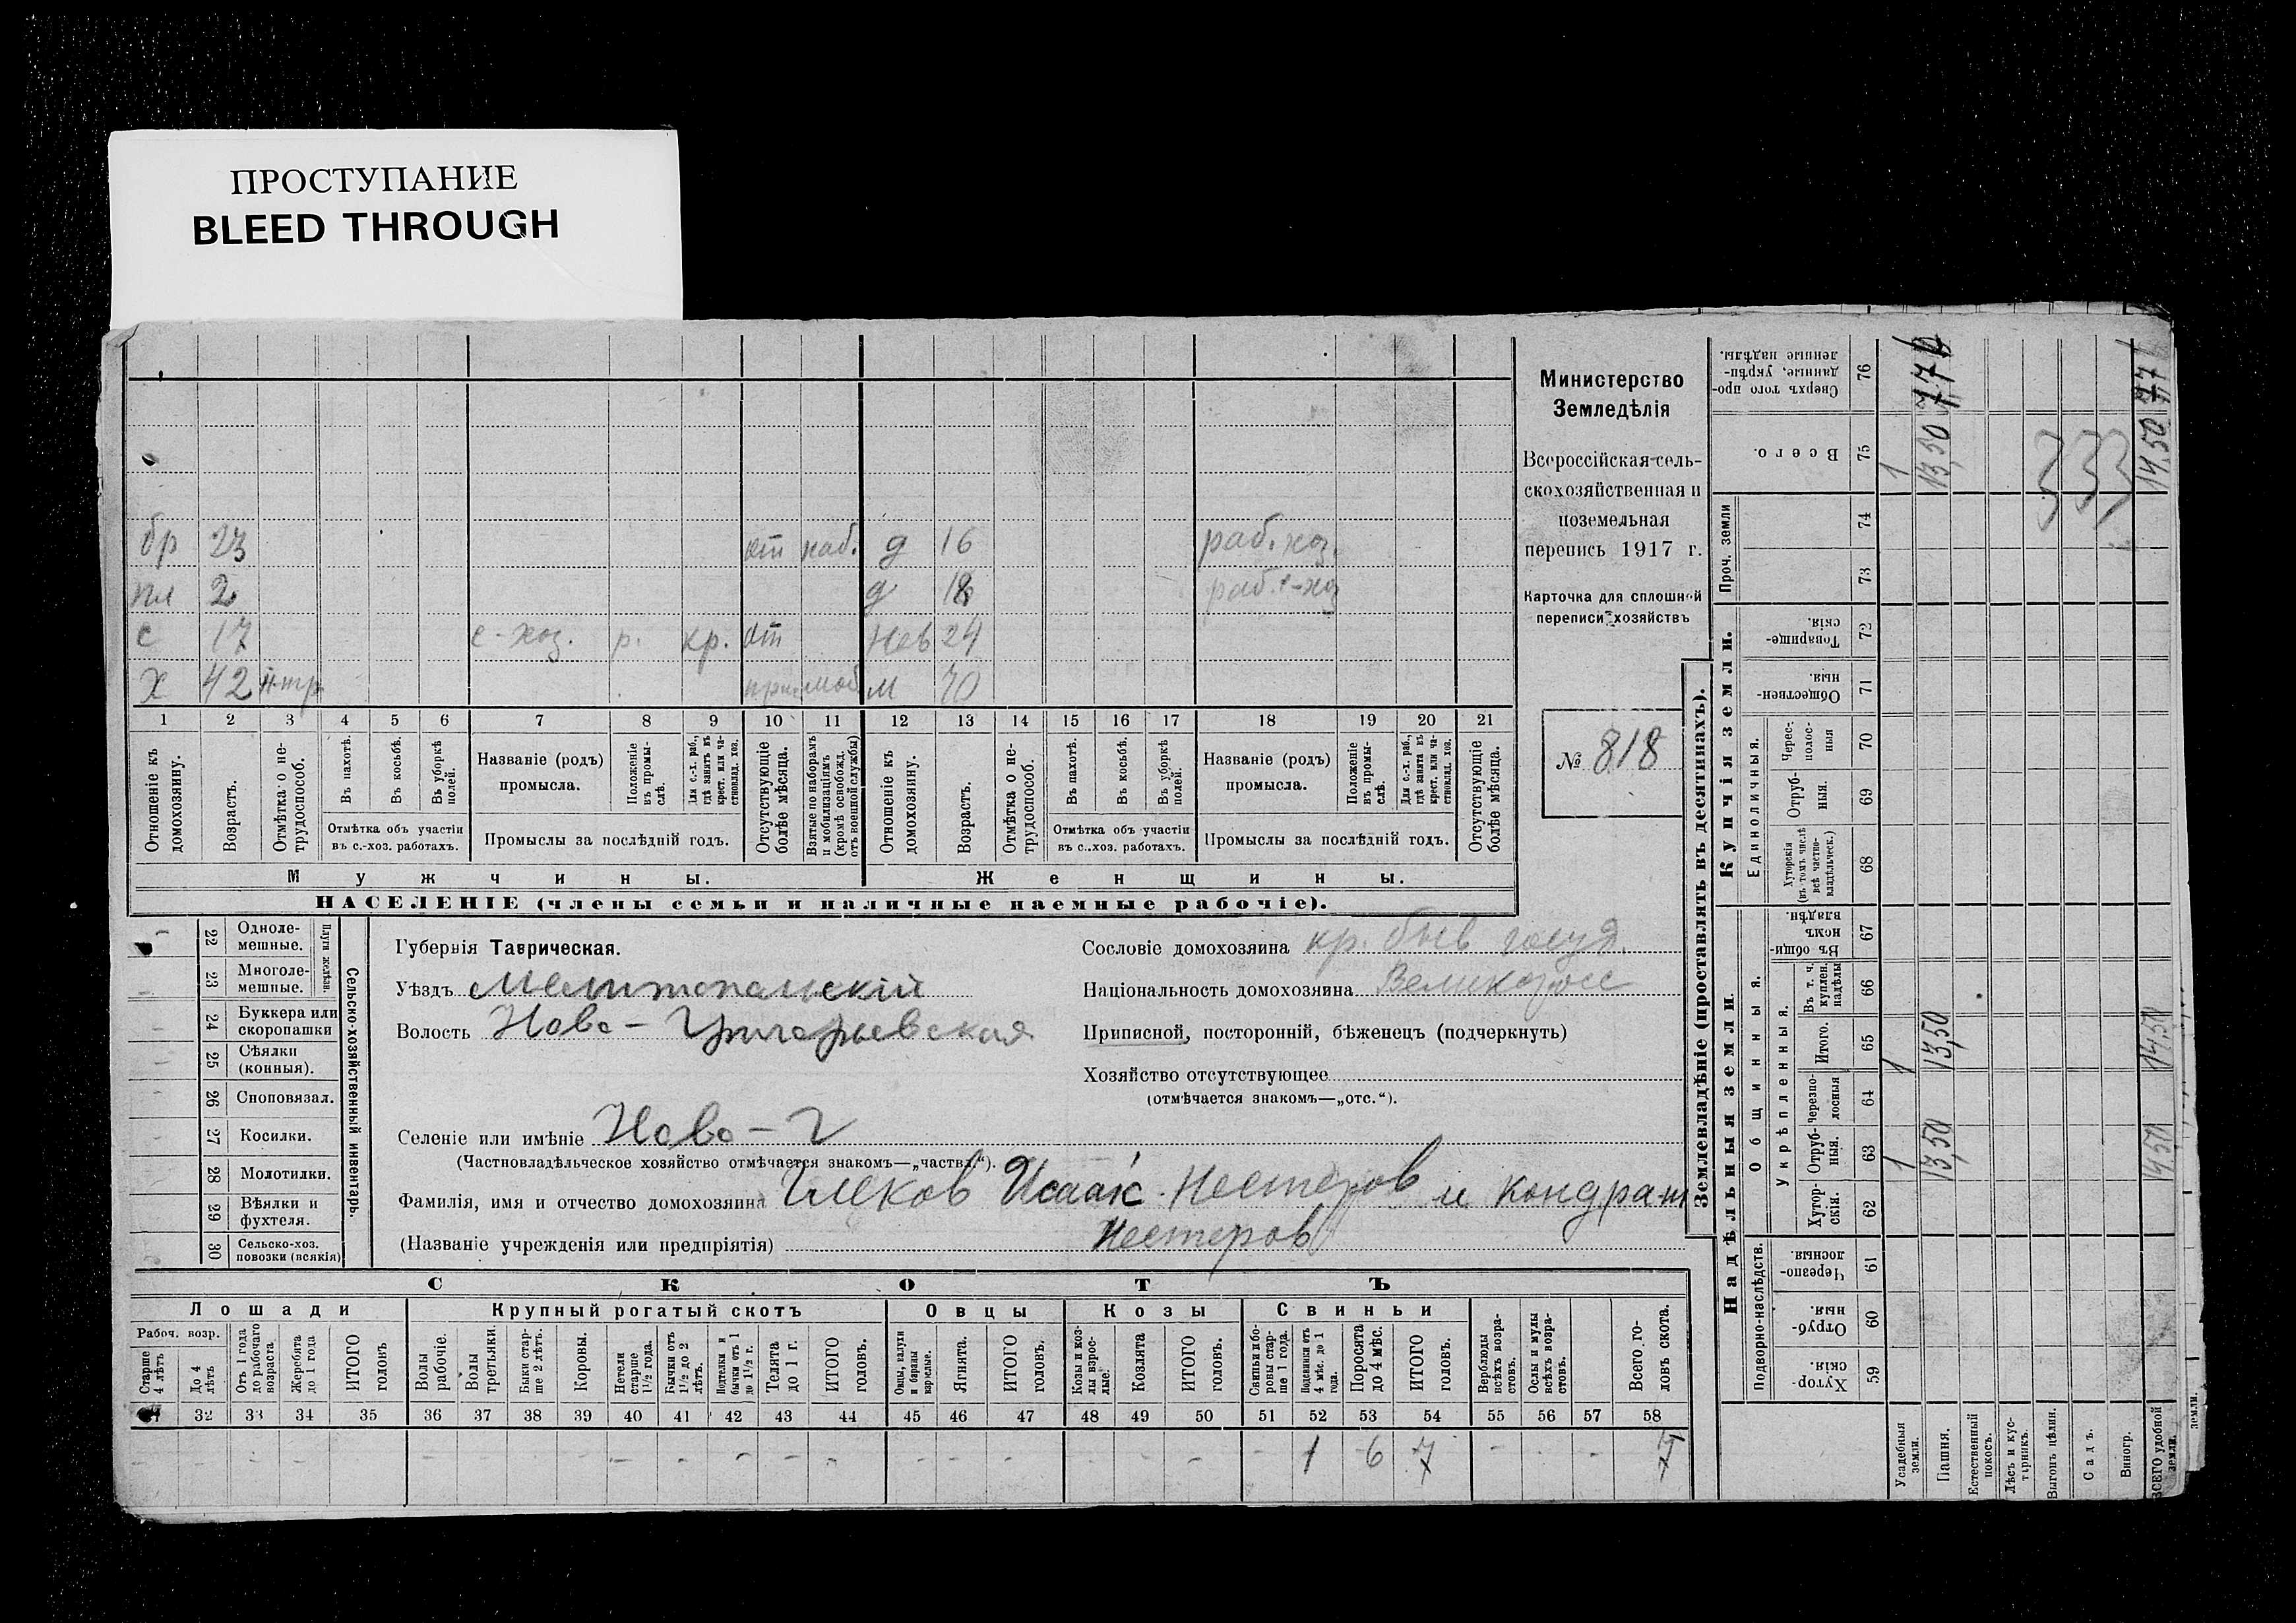 ПРОСТУПАНИЕ
BLEED THROUGH
бр 23 от наб. д 16 раб. хоз.
пл 2 д 18
с 17 с-хоз. р. кр. от нев 24
х 42 м 70
1 2 3 4 5 6 7 8 9 10 11 12 13 14 15 16 17 18 19 20 21
Отношеніе къ домохозяину.
Возрастъ.
Отмѣтка о не-трудоспособ.
Въ пахотѣ.
Въ косьбѣ.
Въ уборкѣ полей.
Отмѣтка объ участіи
въ с.-хоз. работахъ.
Названіе (родъ)
промысла.
Положеніе въ промы-слѣ.
Для с.-х. раб., гдѣ занятъ въ крест. или ча-стновлад. хоз.
Промыслы за послѣдній годъ.
Отсутствующіе болѣе мѣсяца.
Взятые по наборамъ и мобилизаціямъ (кромѣ освобожд. отъ военной службы)
Отношеніе къ домохозяину.
Возрастъ.
Отмѣтка о не-трудоспособ.
Въ пахотѣ.
Въ косьбѣ.
Въ уборкѣ полей.
Отмѣтка объ участіи
въ с.-хоз. работахъ.
Названіе (родъ)
промысла.
Положеніе въ промы-слѣ.
Для с.-х. раб., гдѣ занята въ крест. или ча-стновлад. хоз.
Промыслы за послѣдній годъ.
Отсутствующіе болѣе мѣсяца.
Мужчины. Женщины.
НАСЕЛЕНІЕ (члены семьи и наличные наемные рабочіе).
Министерство
Земледѣлія
Всероссійская сель-
скохозяйственная и
поземельная
перепись 1917 г.
Карточка для сплошной
переписи хозяйствъ
№ 818
22 Одноле-мешные.
23 Многоле-мешные.
Плуги желѣзн.
24 Буккера или скоропашки
25 Сѣялки (конныя).
26 Сноповязал.
27 Косилки.
28 Молотилки.
29 Вѣялки и фухтеля.
30 Сельско-хоз. повозки (всякія)
Сельско-хозяйственный инвентарь.
Губернія Таврическая.
Уѣздъ Мелитопольскій
Волость Ново-Григорьевская
Селеніе или имѣніе Ново-Г
(Частновладѣльческое хозяйство отмѣчается знакомъ—„частвл.“).
Фамилія, имя и отчество домохозяина Исаак Нестеров и Кондрат
Нестеров
(Названіе учрежденія или предпріятія)
Сословіе домохозяина кр. быв
Національность домохозяина Великоросс
Приписной, посторонній, бѣженецъ (подчеркнуть)
Хозяйство отсутствующее
(отмѣчается знакомъ—„отс.“).
СКОТЪ
Лошади Крупный рогатый скотъ Овцы Козы Свиньи
Рабоч. возр.
Старше 4 лѣтъ
До 4 лѣтъ
Отъ 1 года до рабочаго возраста
Жеребята до 1 года
ИТОГО головъ
Волы рабочіе.
Волы третьяки.
Быки стар-ше 2 лѣтъ.
Коровы.
Нетели старше 1 1/2 года.
Бычки отъ 1 1/2 до 2 лѣтъ.
Подтелки и бычки отъ 1 до 1 1/2 г.
Телята до 1 г.
ИТОГО головъ.
Овцы, валухи и бараны взрослые.
Ягнята.
ИТОГО головъ.
Козы и коз-лы взрос-лые.
Козлята
ИТОГО головъ.
Свиньи бо-ровы стар-ше 1 года.
Подсвинки отъ 4 мѣс. до 1 года.
Поросята до 4 мѣс.
ИТОГО головъ.
Верблюды всѣхъ возра-стовъ.
Ослы и мулы всѣхъ возра-стовъ.
Всего го-ловъ скота.
32 33 34 35 36 37 38 39 40 41 42 43 44 45 46 47 48 49 50 51 52 53 54 55 56 57 58
1 6 7 7
Землевладѣніе (проставлять въ десятинахъ).
Купчія земли.
Надѣльныя земли.
Сверхъ того про-данные, укрѣп-ленные надѣлы. 76
Всего. 75 1 13,50 14,50
333
Проч. земли 74 73
Товарище-скія. 72
Обществен-ныя. 71
Единоличныя.
Черес-полос-ныя 70
Отруб-ныя. 69
Хуторскія (въ томъ числѣ всѣ частно-владѣльческ.) 68
Общинныя.
Въ общин-номъ владѣн. 67
Укрѣпленныя.
Въ т. ч. куплен. надѣлы 66
Итого. 65 1 13,50 14,50
Черезпо-лосныя 64
Отруб-ныя. 63 1 13,50 14,50
Хутор-скія. 62
Подворно-наслѣдств.
Черезпо-лосныя. 61
Отруб-ныя. 60
Хутор-скія. 59
Усадебныя земли.
Пашня.
Естественный покосъ.
Лѣсъ и кус-тарникъ.
Выгонъ цѣлин.
Садъ.
Виногр.
ВСЕГО удобной земли.
земли.